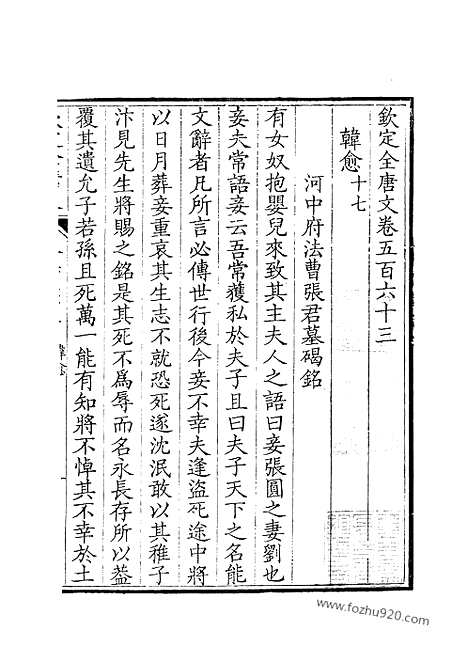 欽定全唐文卷五百六十三
韓愈十七
河中府法曹張君墓碣銘
有女奴抱嬰兒來致其主夫人之語曰妾張圓之妻劉也
妾夫常語妾云吾常獲私於夫子且曰夫子天下之名能
文辭者凡所言必傳世行後今妾不幸夫逢盜死途中將
以日月葬妾重哀其生志不就恐死遂沈泯敢以其稚子
汴見先生將賜之銘是其死不爲辱而名永長存所以葢
覆其遺允子若孫且死萬一能有知將不悼其不幸於土
韓愈
www.fozhu920.com